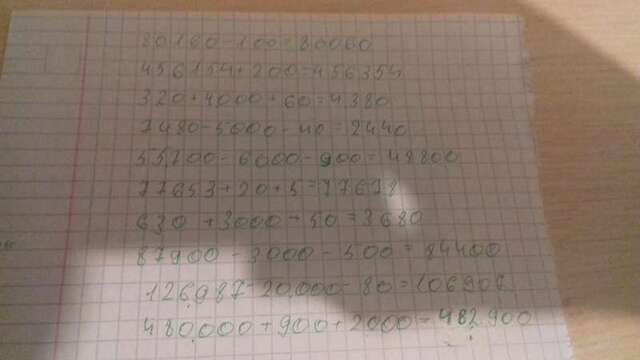 80160-100=80060
456154+200=456354
320+4000+60=4380
7480-5000-40=2440
55700-6000-900=48800
77653+20+5=77678
630+3000+50=3680
87900-3000-500=84400
126.987-20.000-80=106907
480.000+900+2000=482.900